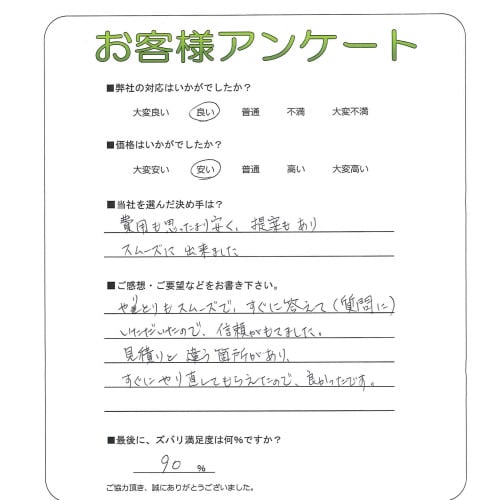 お客様アンケート
■弊社の対応はいかがでしたか？
大変良い 良い 普通 不満 大変不満
■価格はいかがでしたか？
大変安い 安い 普通 高い 大変高い
■当社を選んだ決め手は？
費用も思ったより安く、提案もあり
スムーズに出来ました
■ご感想・ご要望などをお書き下さい。
やりとりもスムーズで、すぐに答えて(質問に)
いただいたので、信頼がもてました。
見積りと違う箇所があり、
すぐにやり直してもらえたので、良かったです。
■最後に、ズバリ満足度は何%ですか？
90 %
ご協力頂き、誠にありがとうございました。